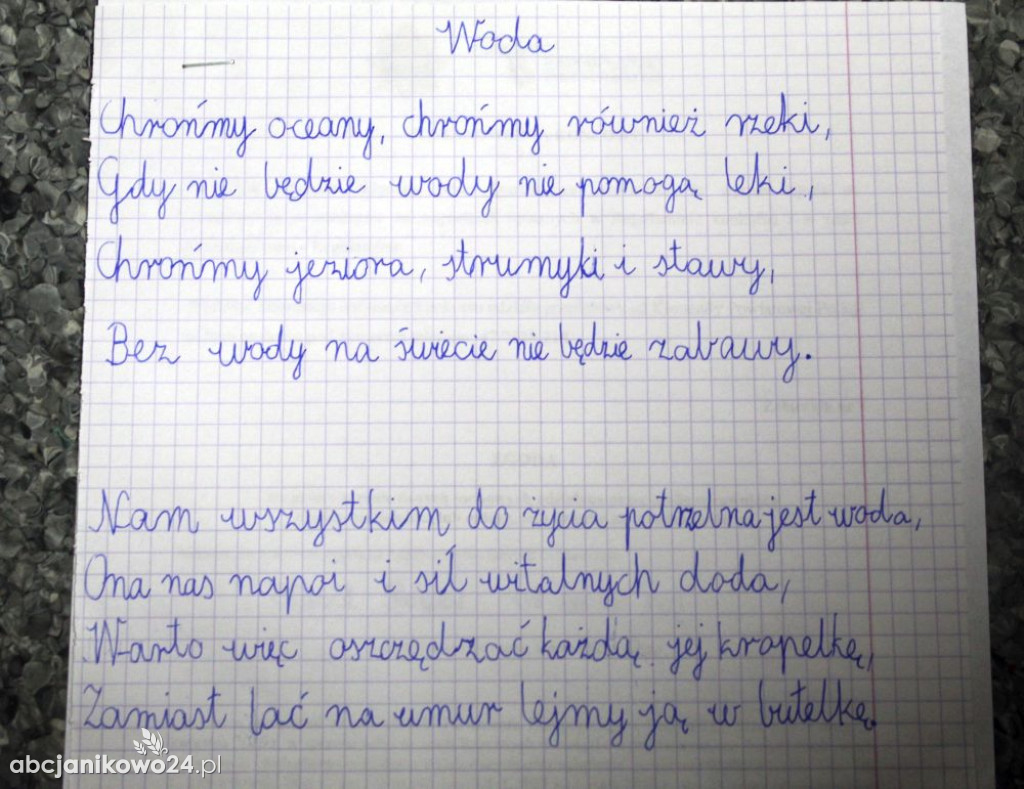 Woda
Chrońmy oceany, chrońmy również rzeki,
Gdy nie będzie wody nie pomogą leki,
Chrońmy jeziora, strumyki i stawy,
Bez wody na świecie nie będzie zabawy.
Nam wszystkim do życia potrzebna jest woda,
Ona nas napoi i sił witalnych doda,
Warto więc oszczędzać każdą jej kropelkę,
Zamiast lać na umur lejmy ją w butelkę.
abcjanikowo24.pl